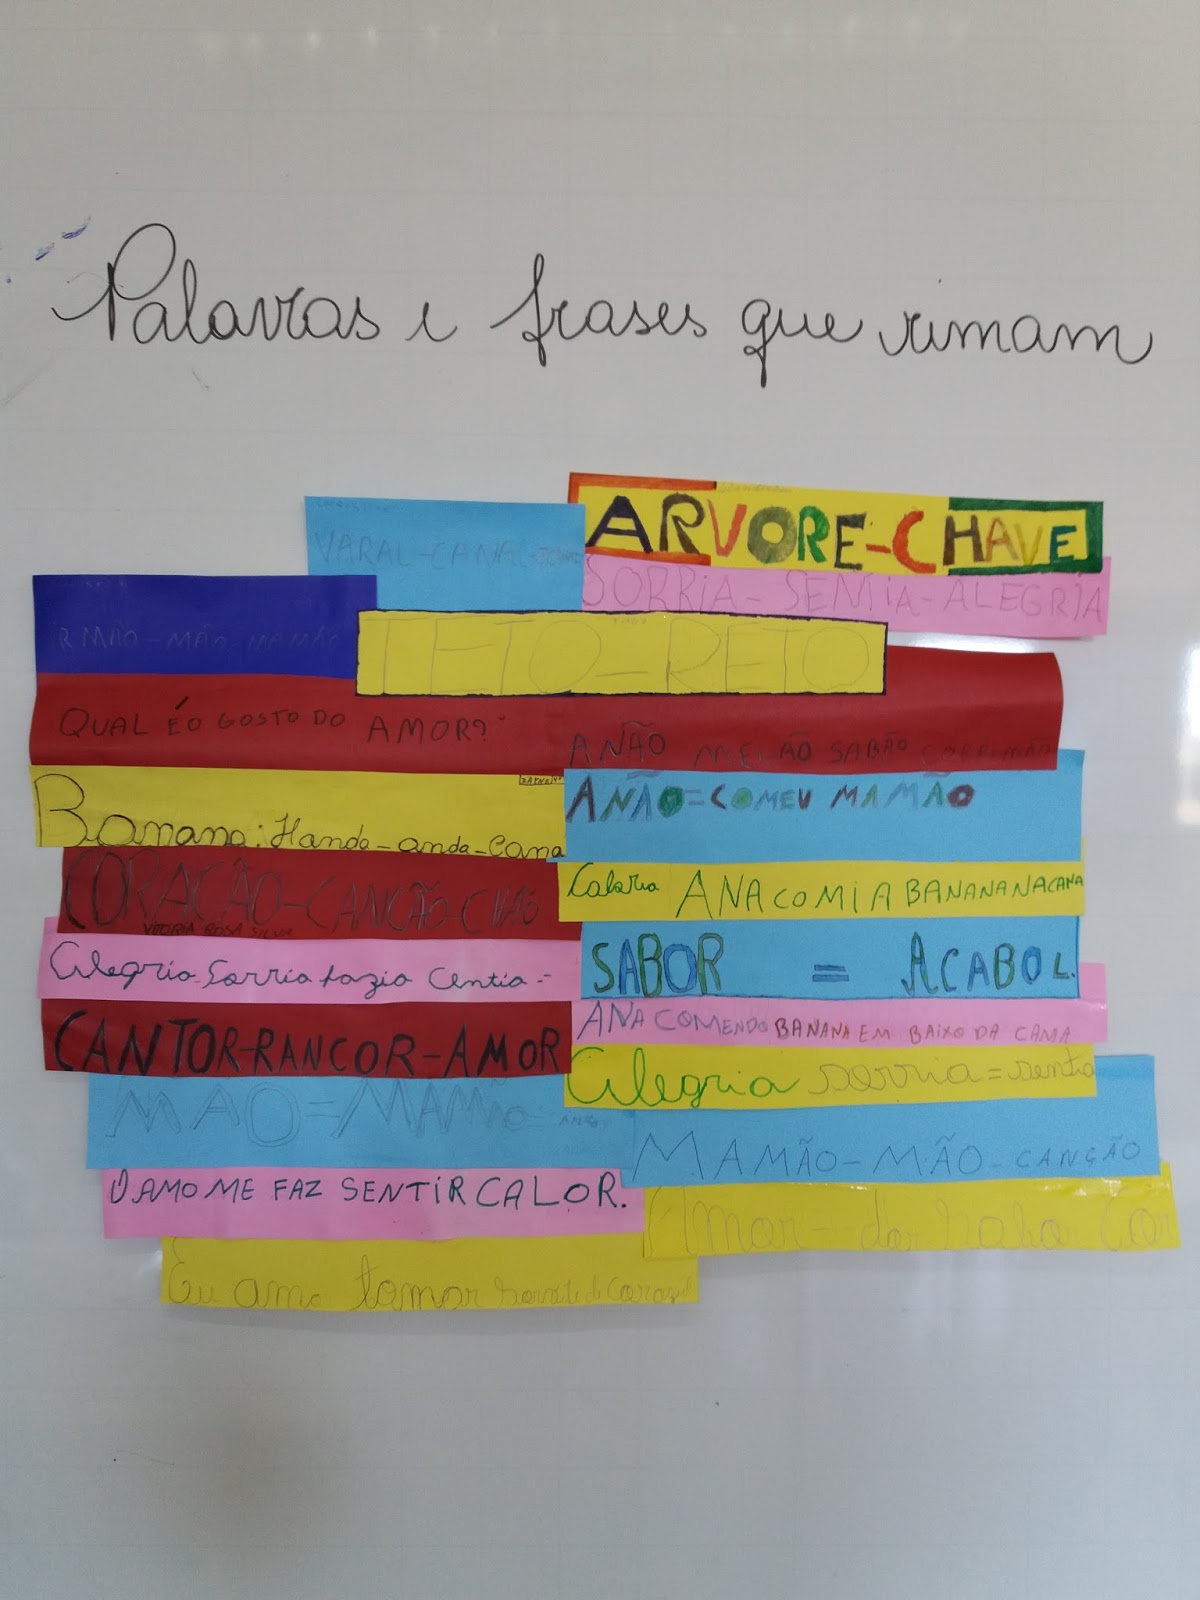 Palavras e frases que rimam
ARVORE-CHAVE
VARAL-CANAL-
SORRIA-SEMIA-ALEGRIA
RMÃO-MÃO-MAMÃO
TETO-RETO
QUAL É O GOSTO DO AMOR?
ANÃO MELÃO SABÃO CORRIMÃO
Banana: Handa-anda-Cana
ANÃO=COMEU MAMÃO
CORAÇÃO-CANÇÃO-CHÃO
ANA COMIA BANANA NA CAMA
Alegria-Sorria fazia Centia-
SABOR = ACABOL.
ANA COMENDO BANANA EM BAIXO DA CAMA
CANTOR-RANCOR-AMOR
Alegria sorria=sentia
MÃO=MAMÃO=
MAMÃO-MÃO-CANÇÃO
O AMO ME FAZ SENTIR CALOR.
Amor-dor Cor
Eu amo tomar